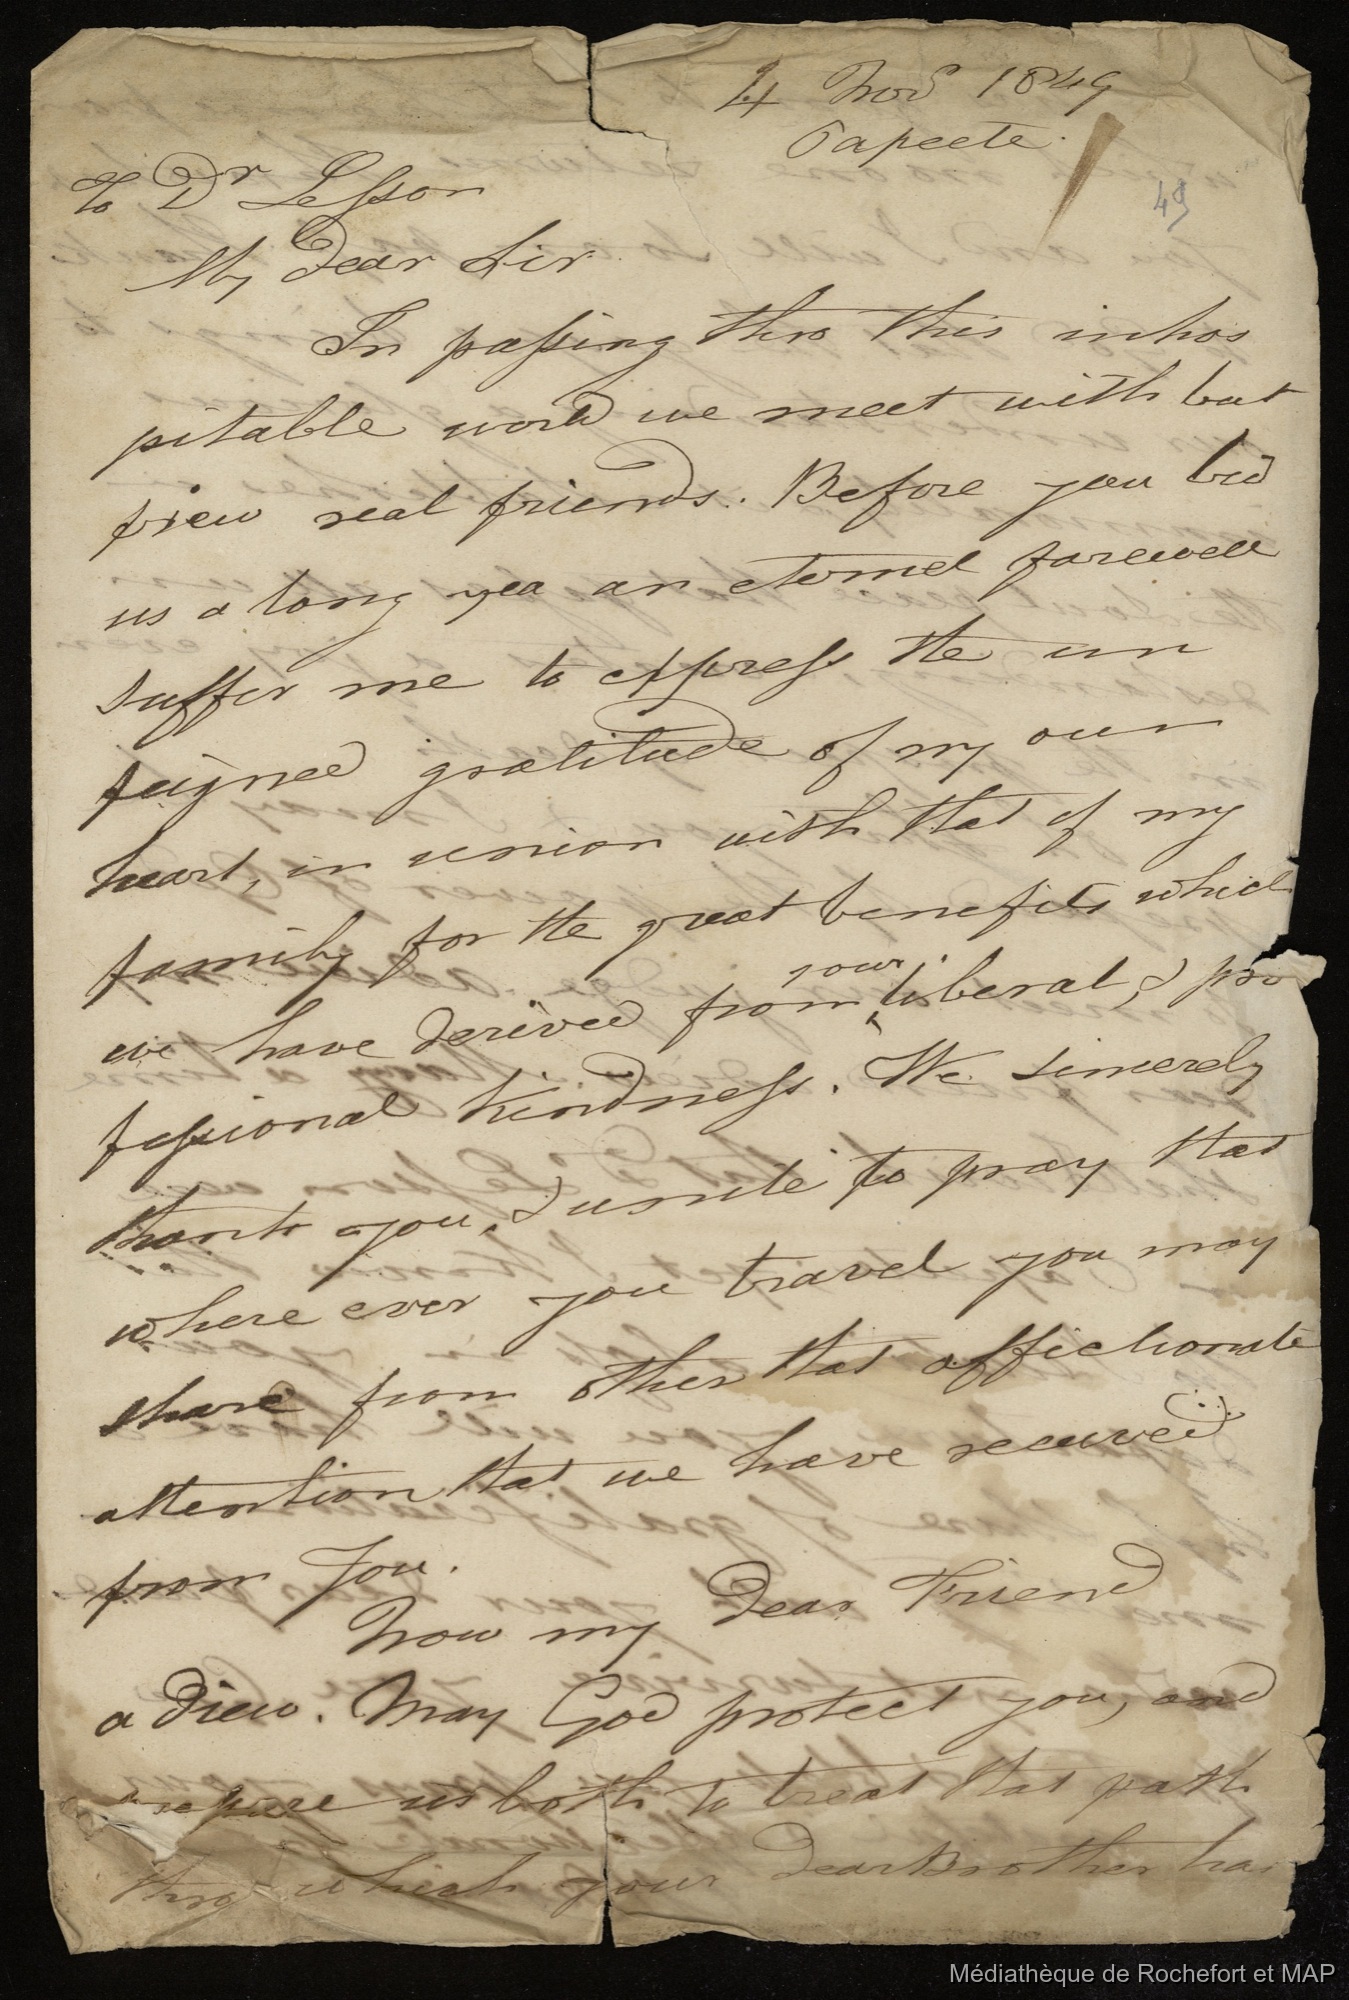 4 Nov 1849
Papeete
49
To Dr Lesson
My Dear Sir
In passing thro this inhos
pitable world we meet with but
friew real friends. Before you bid
us a long yea an eternel farewell
suffer me to express the un
feigned gratitude of my own
heart, in union with that of my
family for the great benefits which
we have derived from your liberal, & pro
fessional kindness. We sincerely
thank you, & unite to pray that
where ever you travel you may
share from other that affectionate
attention that we have received
from You.
Now my Dear Friend
a Dieu. May God protect you, and
prepare us both to tread that path
thro which your dear Brother has
Médiathèque de Rochefort et MAP